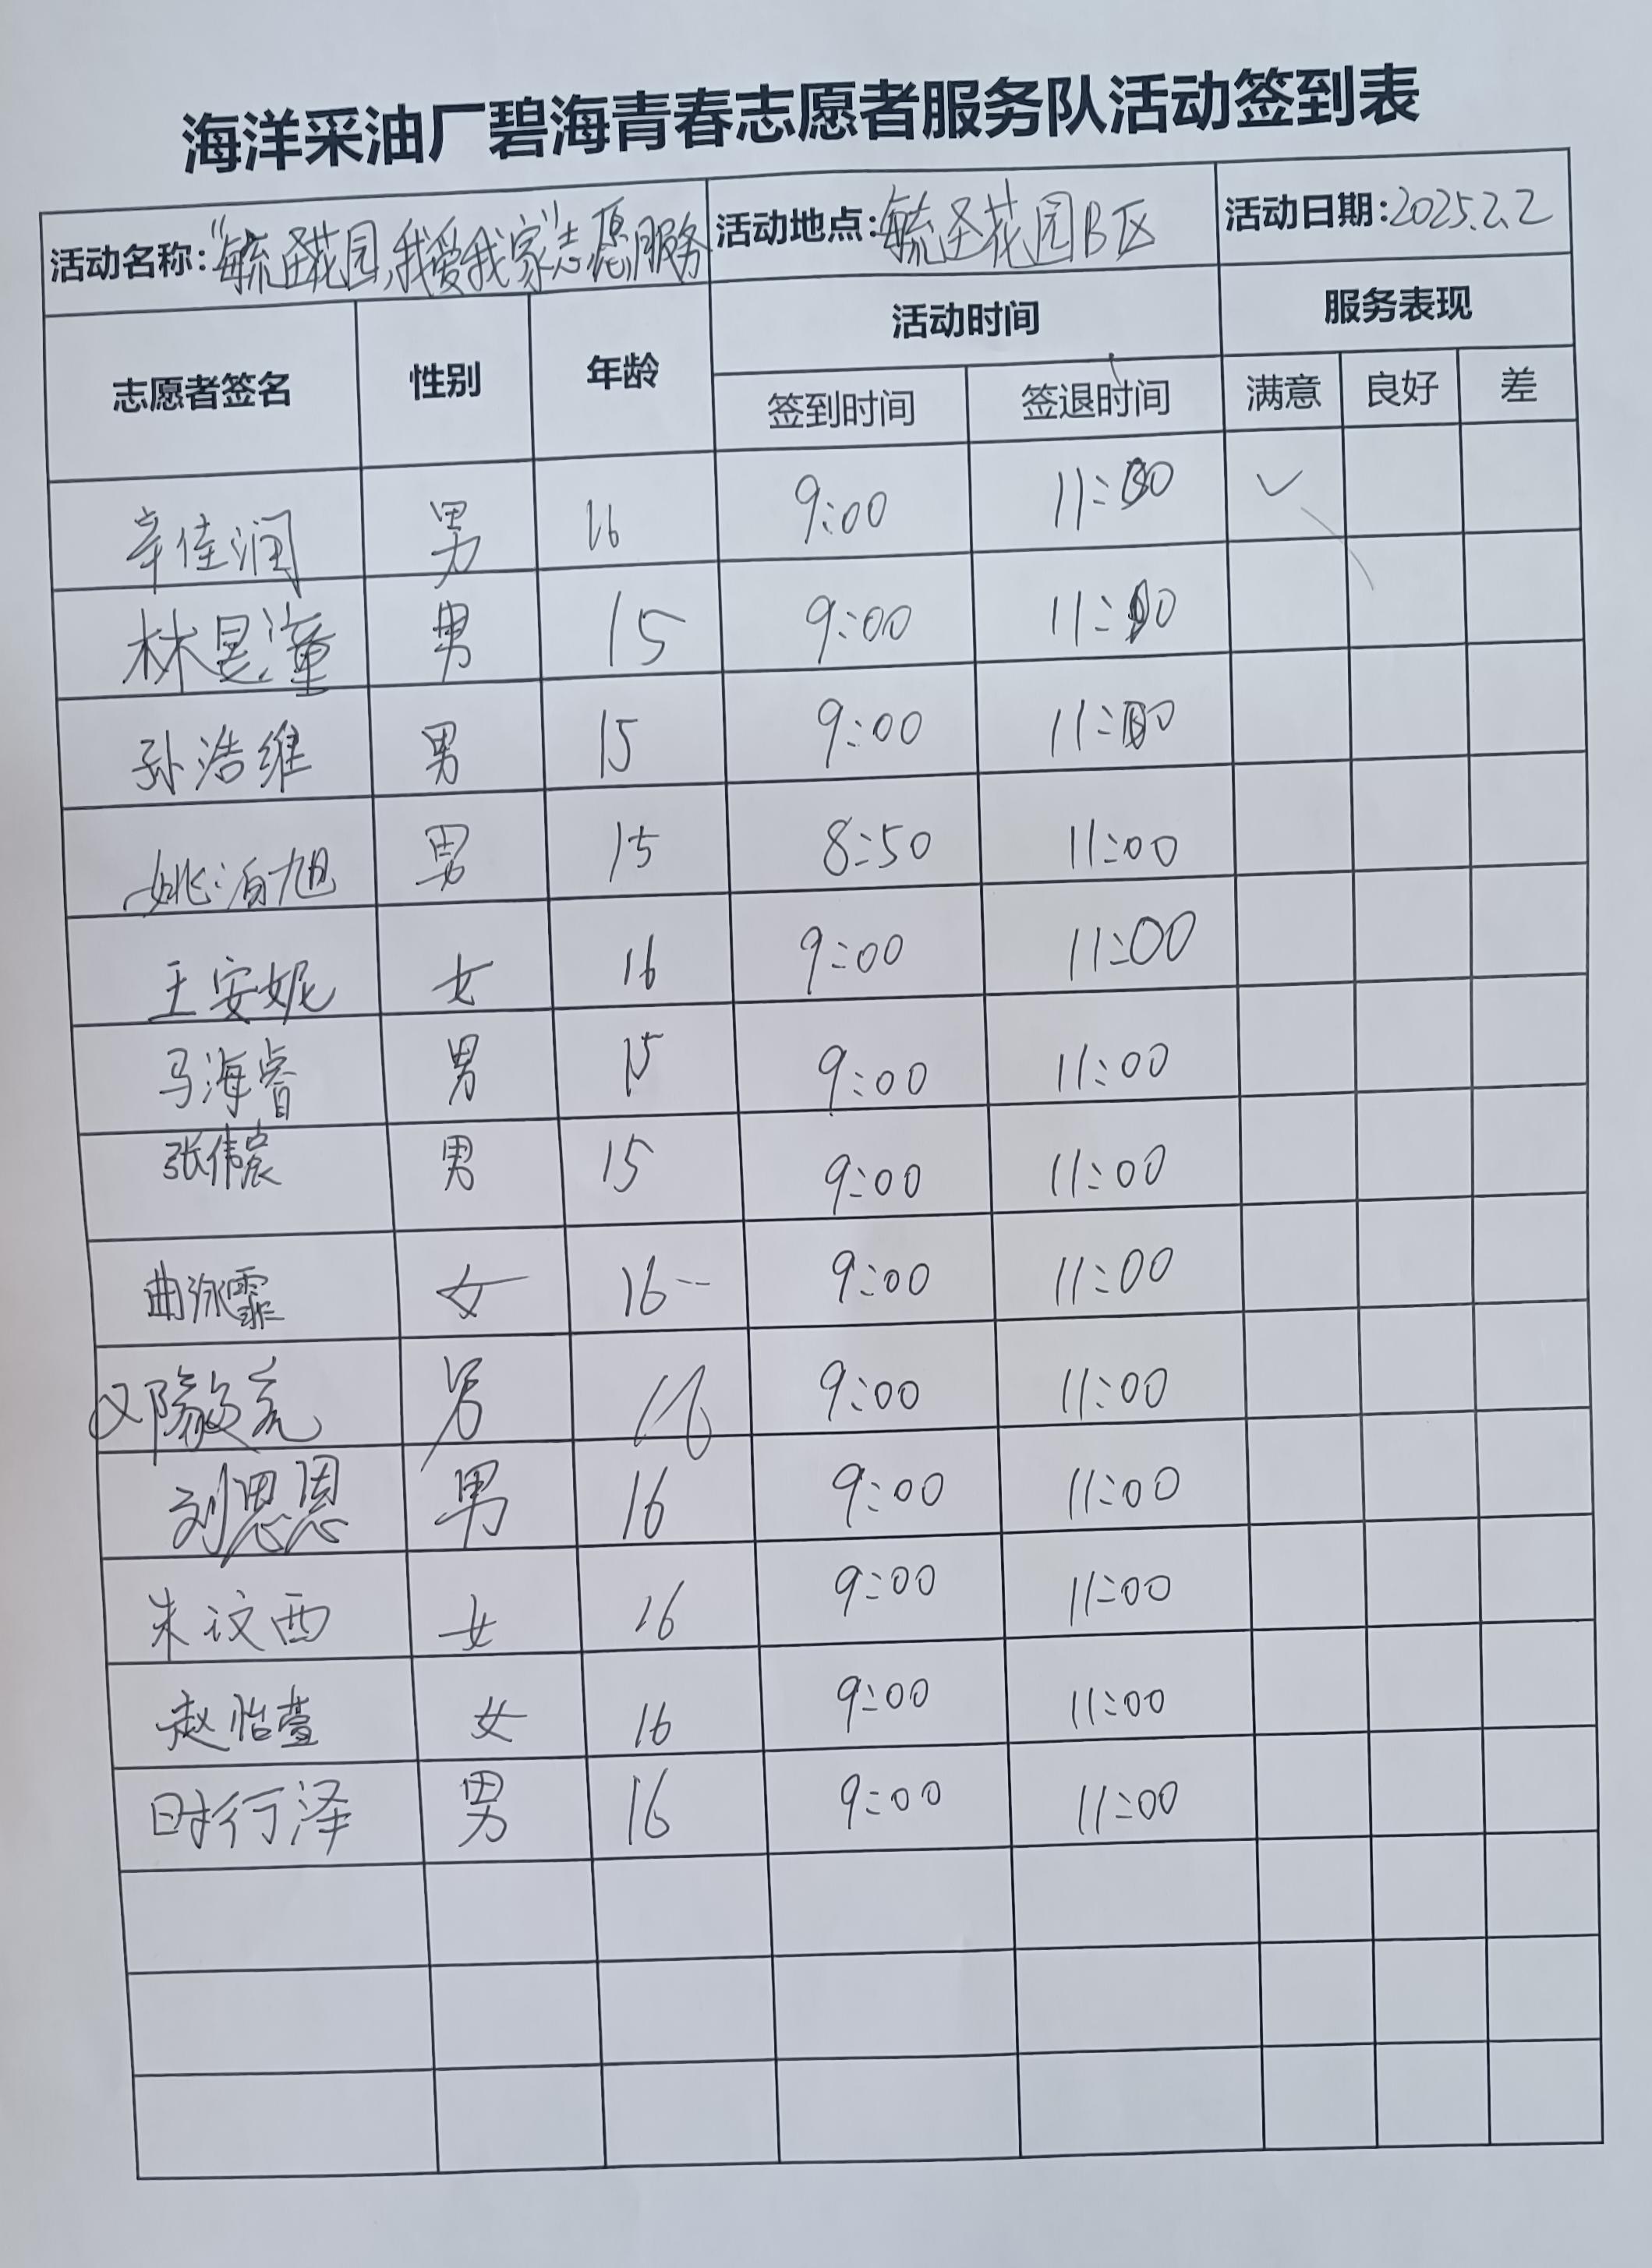 海洋采油厂碧海青春志愿者服务队活动签到表
活动名称:"毓圣花园,我爱我家"志愿服务 活动地点:毓圣花园B区 活动日期:2025.2.2
志愿者签名 性别 年龄 活动时间 服务表现
签到时间 签退时间 满意 良好 差
辛佳润 男 16 9:00 11:00 ✓
林昱潼 男 15 9:00 11:00
孙浩维 男 15 9:00 11:00
姚 旭 男 15 8:50 11:00
王安妮 女 16 9:00 11:00
马海睿 男 15 9:00 11:00
张伟宸 男 15 9:00 11:00
曲泳霏 女 16 9:00 11:00
男 16 9:00 11:00
刘思恩 男 16 9:00 11:00
朱汶西 女 16 9:00 11:00
赵怡萱 女 16 9:00 11:00
时行泽 男 16 9:00 11:00